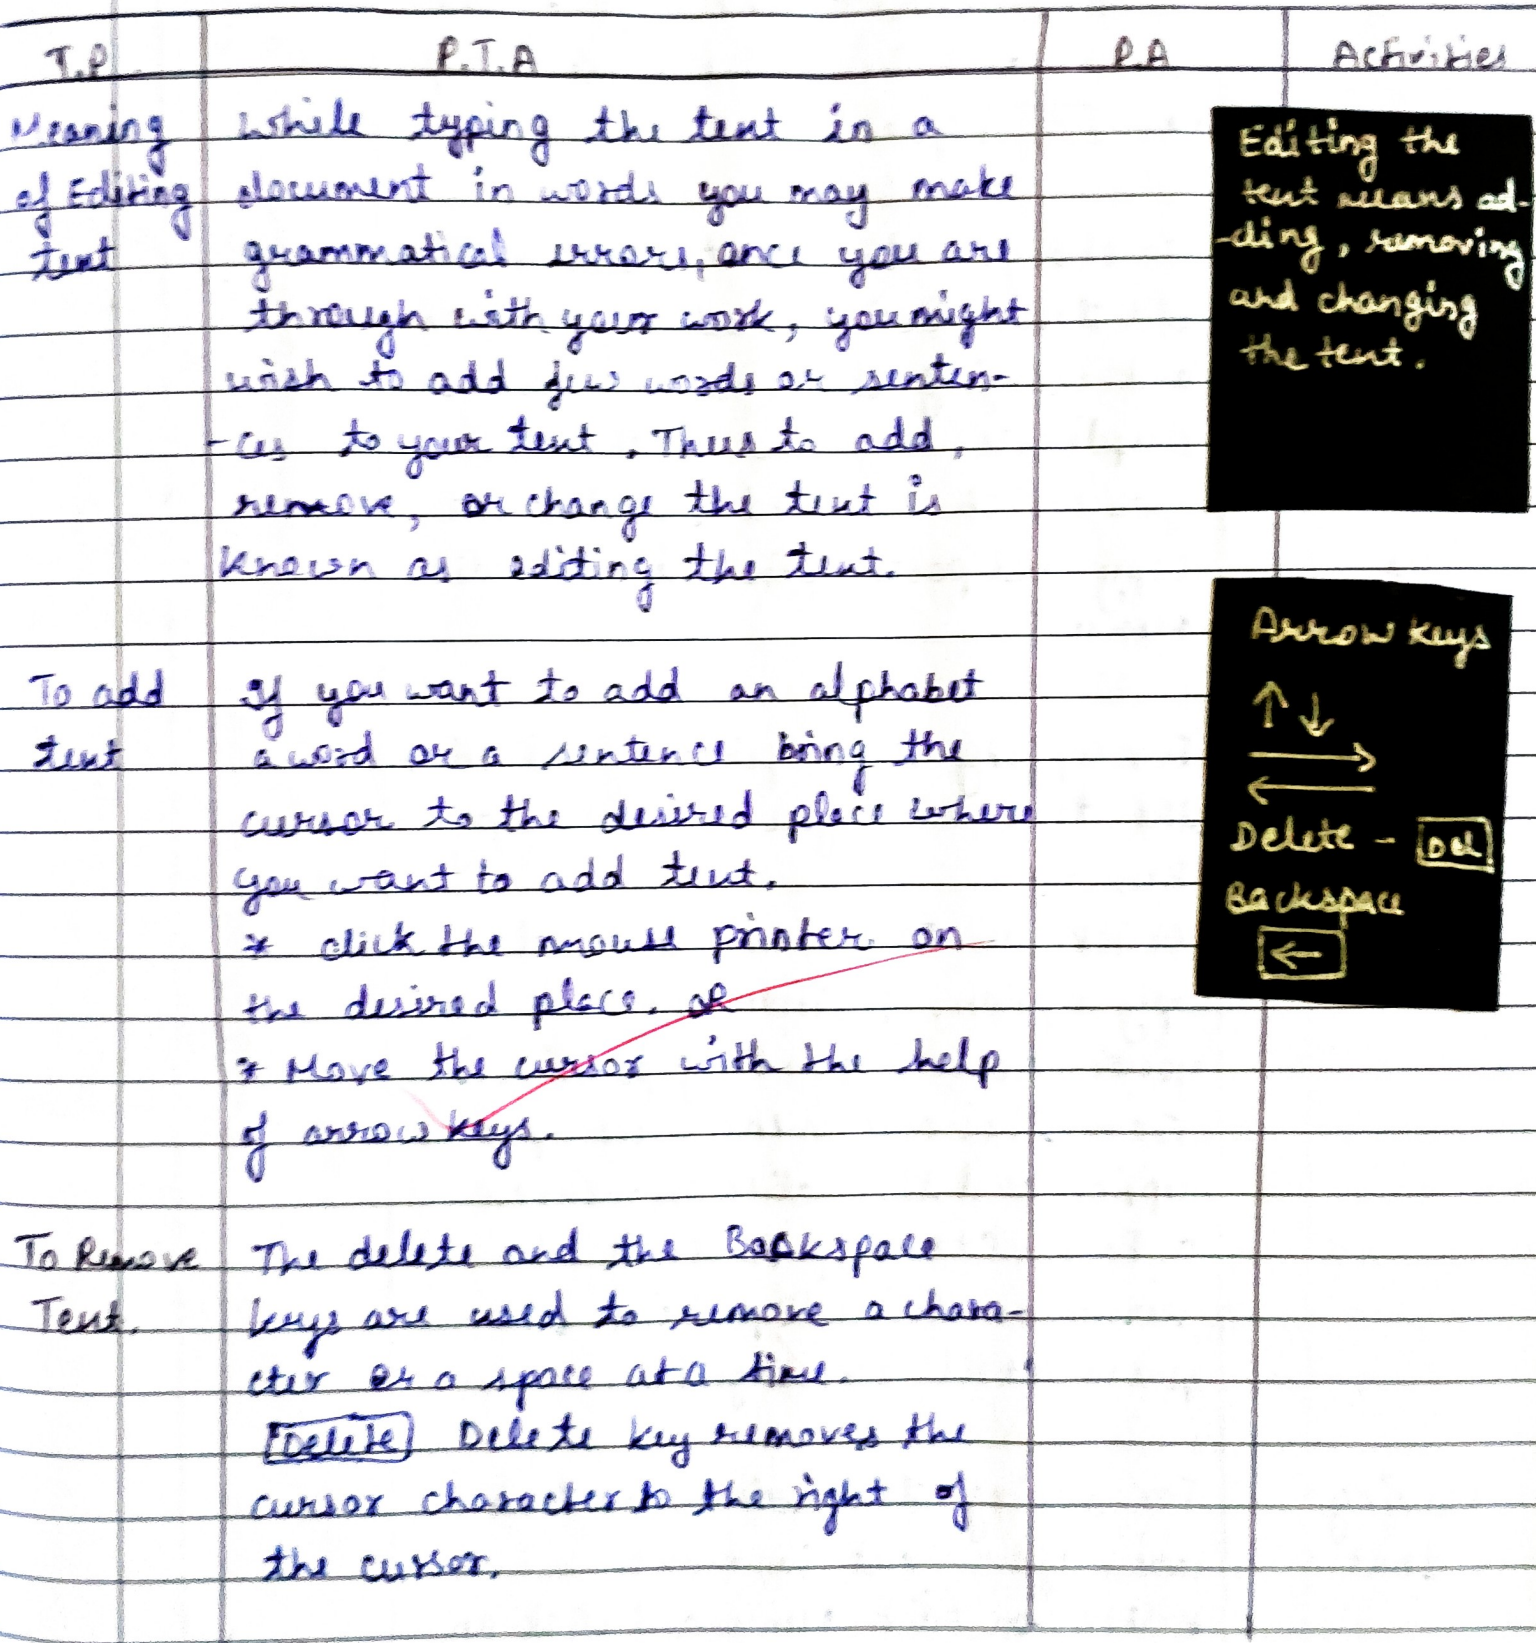 T.P P.T.A P.A Activities
Meaning
of Editing
text
While typing the text in a
document in words you may make
grammatical errors, once you are
through with your work, you might
wish to add few words or senten-
-ces to your text. Thus to add,
remove, or change the text is
known as editing the text.
Editing the
text means ad-
-ding, removing
and changing
the text.
To add
text
If you want to add an alphabet
a word or a sentence bring the
cursor to the desired place where
you want to add text.
* click the mouse printer on
the desired place. OR
* Move the cursor with the help
of arrow keys.
Arrow keys
↑ ↓
→
←
Delete - Del
Backspace
←
To Remove
Text.
The delete and the Backspace
keys are used to remove a chara-
cter or a space at a time.
Delete Delete key removes the
cursor character to the right of
the cursor.